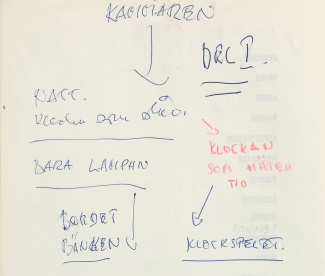 KAMMAREN
DEL I.
NATT.
Klockan som slår.
BARA LAMPAN
KLOCKAN
SOM MÄTER
TID
BORDET
BÄNKEN
KLOCKSPELET.